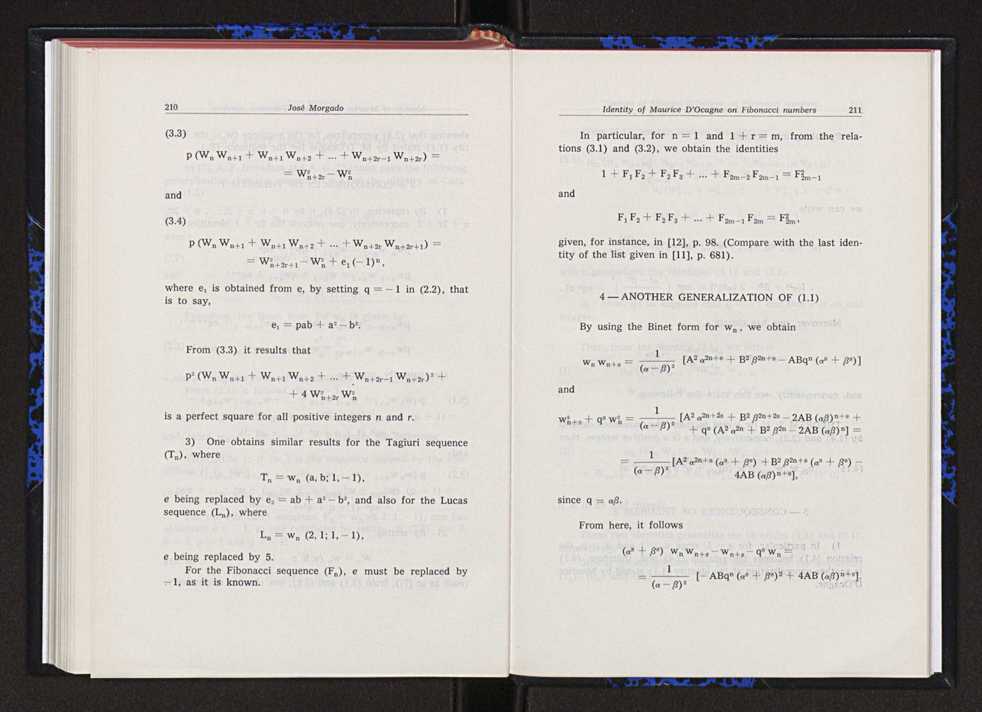 210 José Morgado
(3.3)
p (Wₙ Wₙ₊₁ + Wₙ₊₁ Wₙ₊₂ + ... + Wₙ₊₂ᵣ₋₁ Wₙ₊₂ᵣ) =
= W²ₙ₊₂ᵣ − W²ₙ
and
(3.4)
p (Wₙ Wₙ₊₁ + Wₙ₊₁ Wₙ₊₂ + ... + Wₙ₊₂ᵣ Wₙ₊₂ᵣ₊₁) =
= W²ₙ₊₂ᵣ₊₁ − W²ₙ + e₁ (− 1)ⁿ ,
where e₁ is obtained from e, by setting q = − 1 in (2.2), that
is to say,
e₁ = pab + a² − b².
From (3.3) it results that
p² (Wₙ Wₙ₊₁ + Wₙ₊₁ Wₙ₊₂ + ... + Wₙ₊₂ᵣ₋₁ Wₙ₊₂ᵣ)² +
+ 4 W²ₙ₊₂ᵣ W²ₙ
is a perfect square for all positive integers n and r.
3) One obtains similar results for the Tagiuri sequence
(Tₙ), where
Tₙ = wₙ (a, b; 1, − 1),
e being replaced by e₁ = ab + a² − b², and also for the Lucas
sequence (Lₙ), where
Lₙ = wₙ (2, 1; 1, − 1),
e being replaced by 5.
For the Fibonacci sequence (Fₙ), e must be replaced by
−1, as it is known.
Identity of Maurice D'Ocagne on Fibonacci numbers 211
In particular, for n = 1 and 1 + r = m, from the rela-
tions (3.1) and (3.2), we obtain the identities
1 + F₁ F₂ + F₂ F₃ + ... + F₂ₘ₋₂ F₂ₘ₋₁ = F²₂ₘ₋₁
and
F₁ F₂ + F₂ F₃ + ... + F₂ₘ₋₁ F₂ₘ = F²₂ₘ,
given, for instance, in [12], p. 98. (Compare with the last iden-
tity of the list given in [11], p. 681).
4 — ANOTHER GENERALIZATION OF (1.1)
By using the Binet form for wₙ , we obtain
wₙ wₙ₊ₛ = 1/(α − β)² [A² α²ⁿ⁺ˢ + B² β²ⁿ⁺ˢ − ABqⁿ (αˢ + βˢ)]
and
w²ₙ₊ₛ + qˢ w²ₙ = 1/(α − β)² [A² α²ⁿ⁺²ˢ + B² β²ⁿ⁺²ˢ − 2AB (αβ)ⁿ⁺ˢ +
+ qˢ (A² α²ⁿ + B² β²ⁿ − 2AB (αβ)ⁿ] =
= 1/(α − β)² [A² α²ⁿ⁺ˢ (αˢ + βˢ) + B² β²ⁿ⁺ˢ (αˢ + βˢ) −
4AB (αβ)ⁿ⁺ˢ],
since q = αβ.
From here, it follows
(αˢ + βˢ) wₙ wₙ₊ₛ − wₙ₊ₛ − qˢ wₙ =
= 1/(α − β)² [− ABqⁿ (αˢ + βˢ)² + 4AB (αβ)ⁿ⁺ˢ]